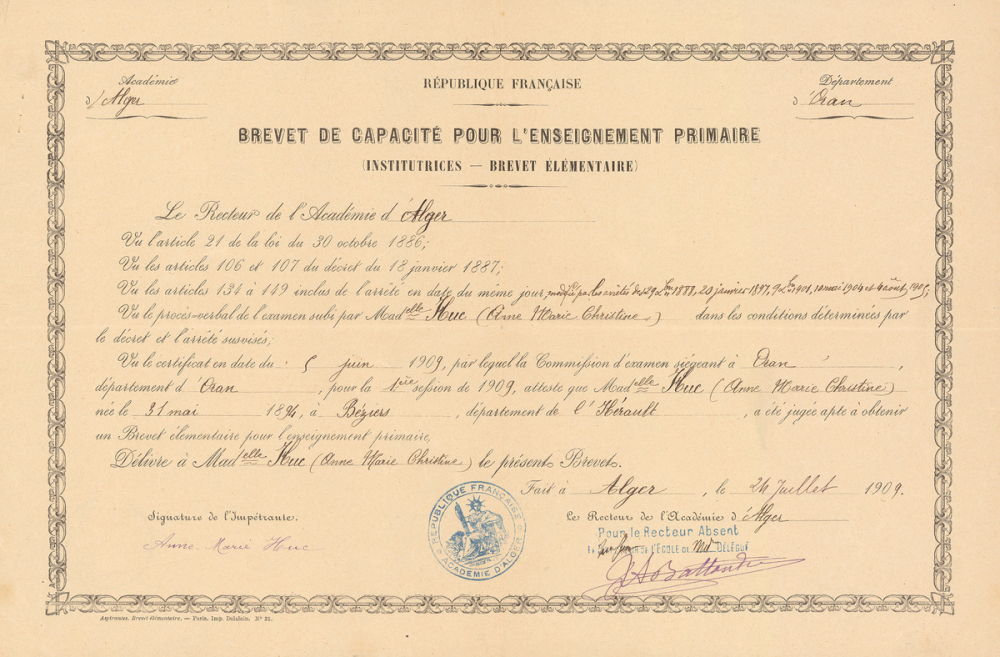 Académie
d'Alger
RÉPUBLIQUE FRANÇAISE
Département
d'Oran
BREVET DE CAPACITÉ POUR L'ENSEIGNEMENT PRIMAIRE
(INSTITUTRICES — BREVET ÉLÉMENTAIRE)
Le Recteur de l'Académie d'Alger
Vu l'article 21 de la loi du 30 octobre 1886;
Vu les articles 106 et 107 du décret du 18 janvier 1887;
Vu les articles 134 à 149 inclus de l'arrêté en date du même jour, modifié par les arrêtés des 29 Xbre 1888, 20 janvier 1897, 9 Xbre 1901, 10 mai 1904 et 4 août 1905;
Vu le procès-verbal de l'examen subi par Madelle Huc (Anne Marie Christine) dans les conditions déterminées par
le décret et l'arrêté susvisés;
Vu le certificat en date du 5 juin 1909, par lequel la Commission d'examen siégeant à Oran,
département d'Oran, pour la 1ère session de 1909, atteste que Madelle Huc (Anne Marie Christine)
née le 31 mai 1894, à Béziers, département de l'Hérault, a été jugée apte à obtenir
un Brevet élémentaire pour l'enseignement primaire,
Délivre à Madelle Huc (Anne Marie Christine) le présent Brevet.
Fait à Alger, le 24 Juillet 1909.
Signature de l'Impétrante.
Le Recteur de l'Académie d'Alger
Pour le Recteur Absent
DE L'ÉCOLE DE DÉLÉGUÉ
Anne Marie Huc
RÉPUBLIQUE FRANÇAISE
ACADÉMIE D'ALGER
Aspirantes. Brevet élémentaire. — Paris. Imp. Delalain. N° 21.